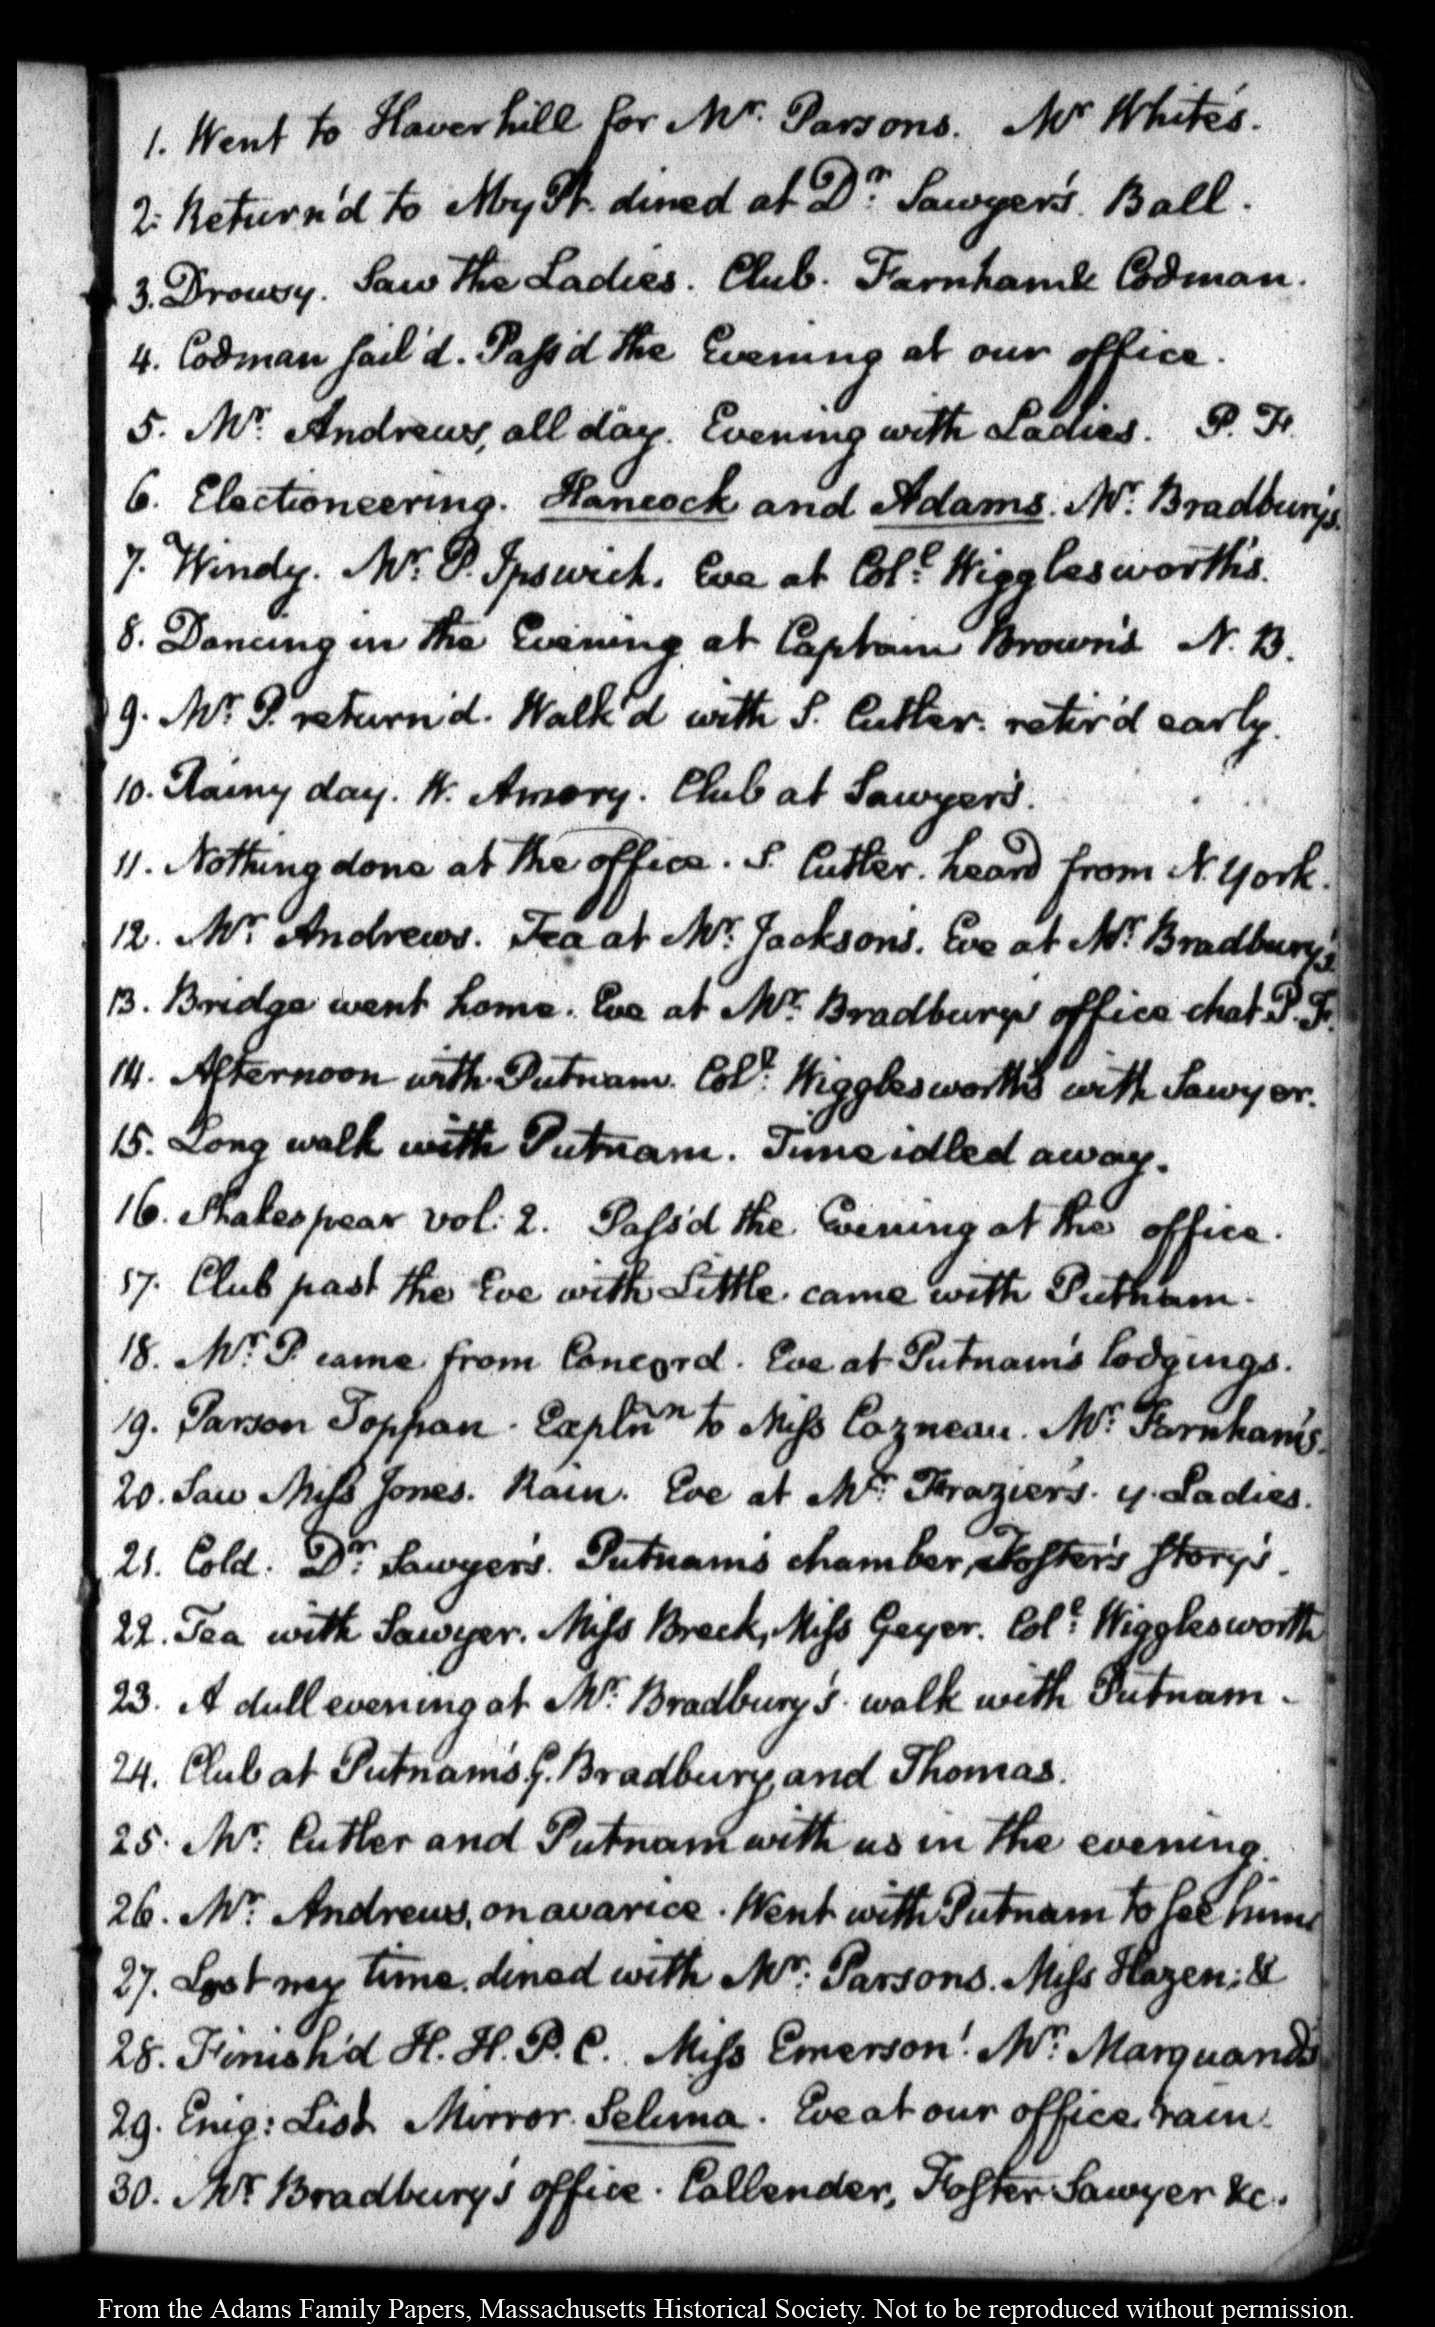 1. Went to Haverhill for Mr. Parsons. Mr White's.
2. Return'd to Nby Pt. dined at Dr. Sawyer's. Ball.
3. Drowsy. Saw the Ladies. Club. Farnham & Codman.
4. Codman sail'd. Pass'd the Evening at our office.
5. Mr. Andrews, all day. Evening with Ladies. P. F.
6. Electioneering. Hancock and Adams. Mr. Bradbury's.
7. Windy. Mr. P. Ipswich. Eve at Coll. Wigglesworth's.
8. Dancing in the Evening at Captain Brown's N. B.
9. Mr. P. return'd. Walk'd with S. Cutler. retir'd early.
10. Rainy day. W. Amory. Club at Sawyer's.
11. Nothing done at the office. S. Cutler. heard from N. York.
12. Mr. Andrews. Tea at Mr. Jackson's. Eve at Mr. Bradbury's
13. Bridge went home. Eve at Mr. Bradbury's office chat P. F.
14. Afternoon with Putnam. Coll. Wigglesworth's with Sawyer.
15. Long walk with Putnam. Time idled away.
16. Shakespear vol: 2. Pass'd the Evening at the office.
17. Club past the Eve with Little. came with Putnam.
18. Mr. P. came from Concord. Eve at Putnam's lodgings.
19. Parson Toppan. Explnn to Miss Cazneau. Mr. Farnham's.
20. Saw Miss Jones. Rain. Eve at Mr. Frazier's. y. Ladies.
21. Cold. Dr. Sawyer's. Putnam's chamber, Foster's story's.
22. Tea with Sawyer. Miss Breck, Miss Geyer. Coll. Wigglesworth
23. A dull evening at Mr. Bradbury's. walk with Putnam.
24. Club at Putnam's. G. Bradbury, and Thomas.
25. Mr. Cutler and Putnam with us in the evening.
26. Mr. Andrews, on avarice. Went with Putnam to see him
27. Lost my time. dined with Mr. Parsons. Miss Hazen: &
28. Finish'd H. H. P. C. Miss Emerson! Mr. Marquand's
29. Enig: List Mirror. Selima. Eve at our office. rain.
30. Mr. Bradbury's office. Callender, Foster Sawyer &c.
From the Adams Family Papers, Massachusetts Historical Society. Not to be reproduced without permission.